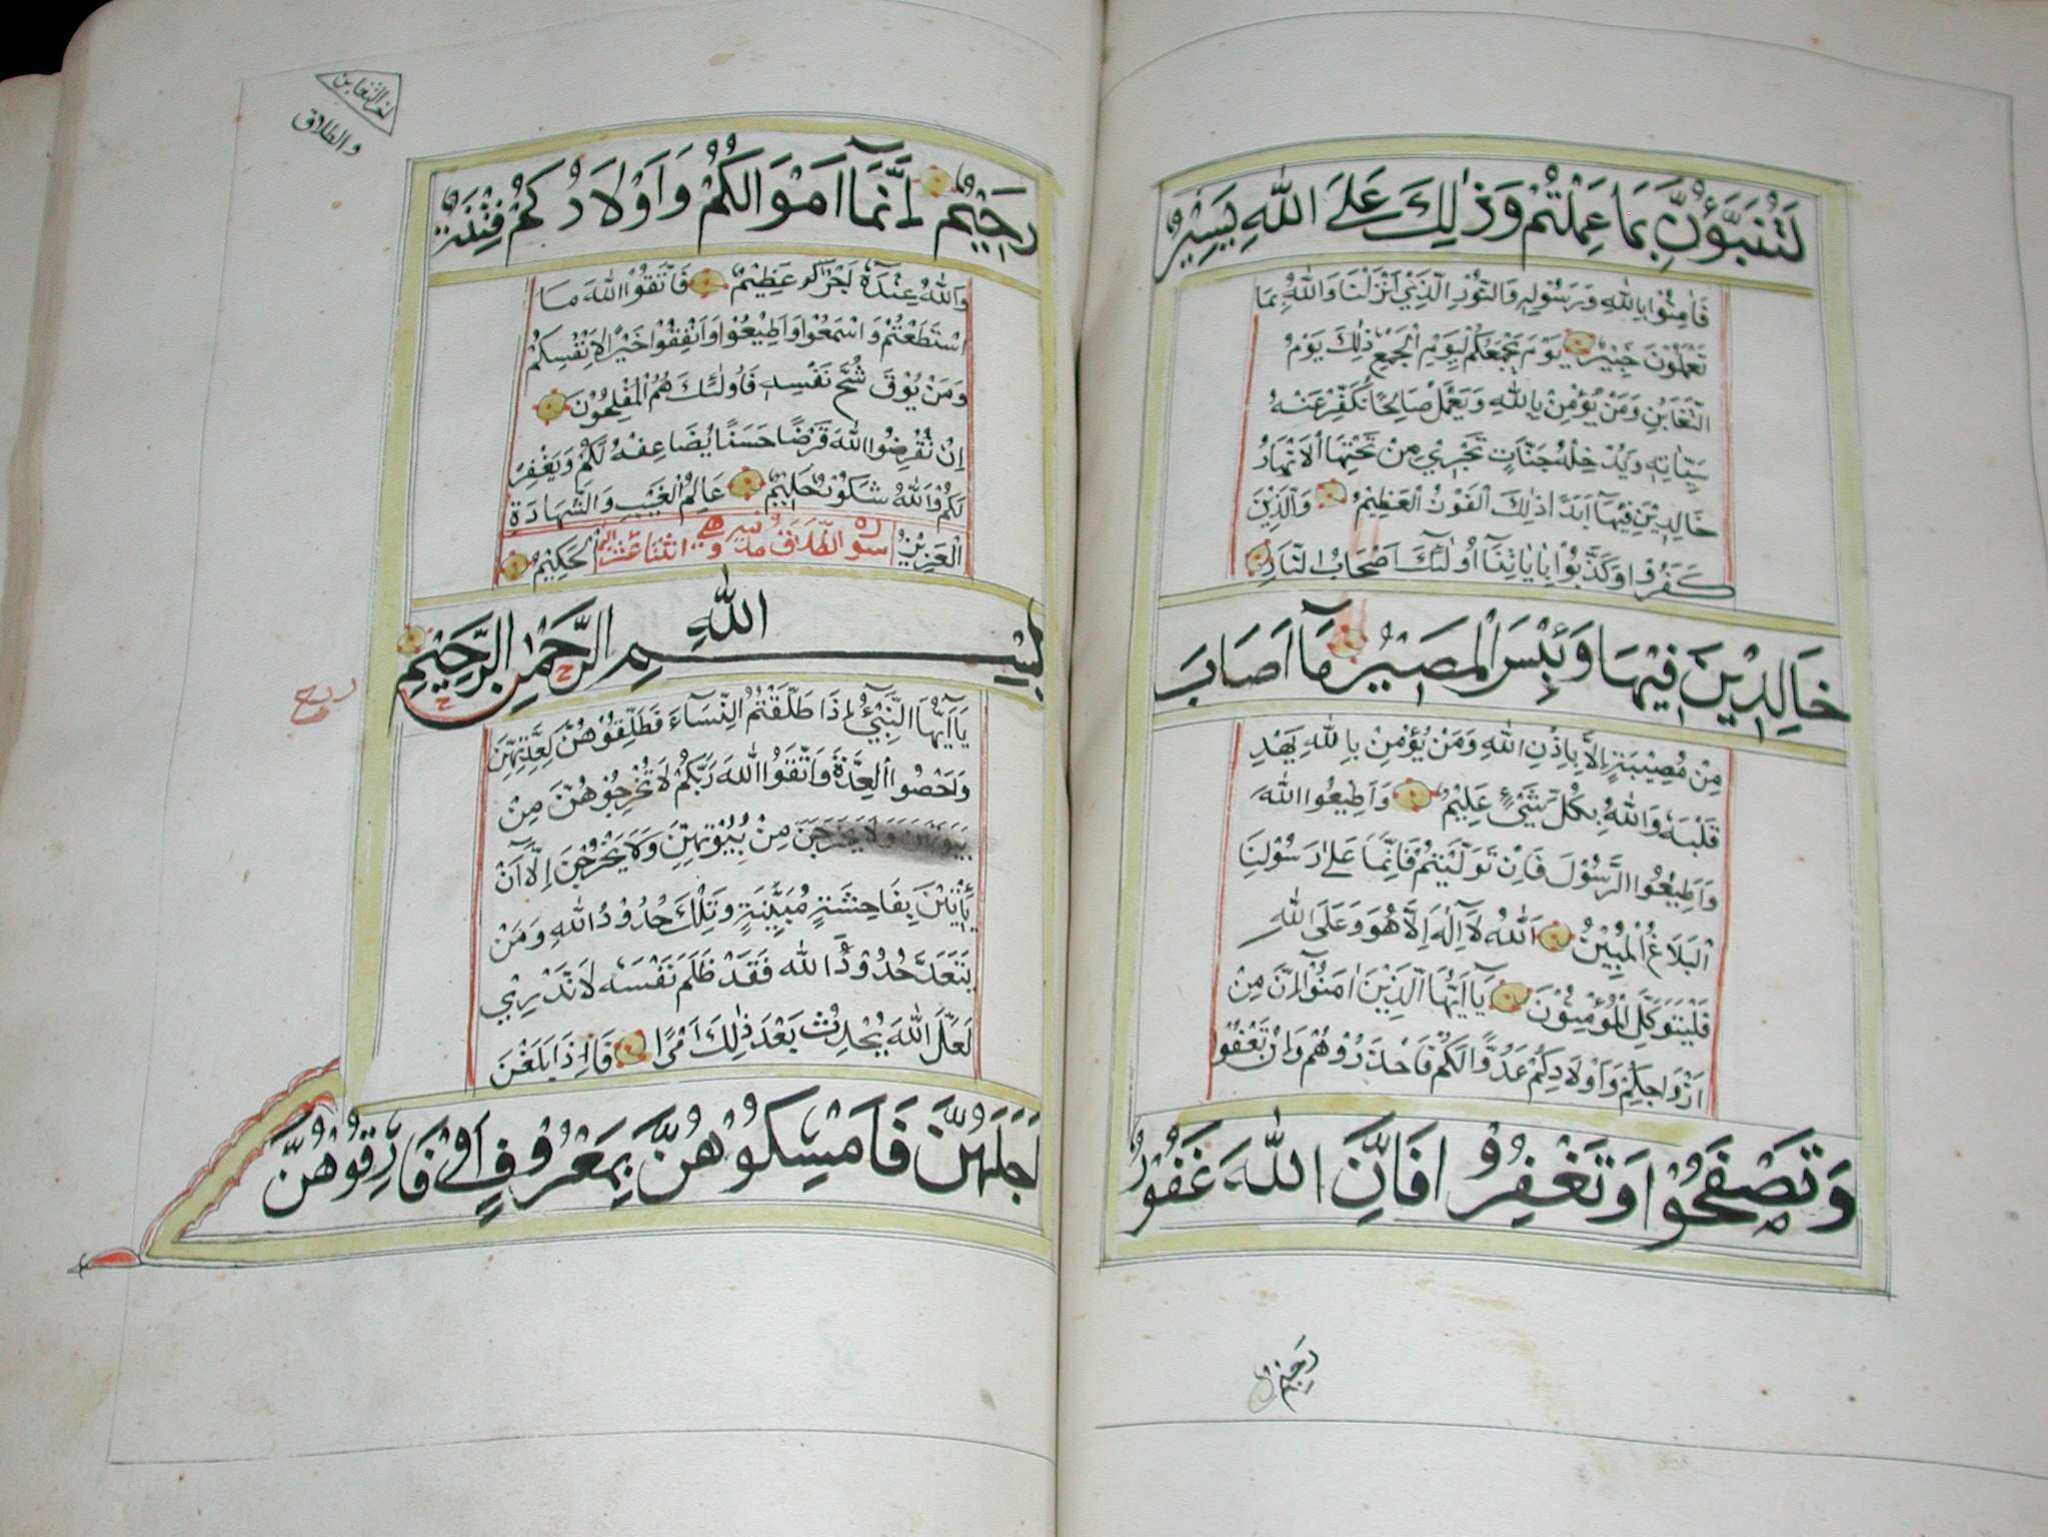 لَتُنَبَّؤُنَّ بِمَا عَمِلْتُمْ وَذٰلِكَ عَلَى اللّٰهِ يَسِيْرٌ
فَاٰمِنُوْا بِاللّٰهِ وَرَسُوْلِهٖ وَالنُّوْرِ الَّذِيْ اَنْزَلْنَا وَاللّٰهُ بِمَا
تَعْمَلُوْنَ خَبِيْرٌ يَوْمَ يَجْمَعُكُمْ لِيَوْمِ الْجَمْعِ ذٰلِكَ يَوْمُ
التَّغَابُنِ وَمَنْ يُؤْمِنْ بِاللّٰهِ وَيَعْمَلْ صَالِحًا نُكَفِّرْ عَنْهُ
سَيِّاٰتِهٖ وَيُدْخِلْهُ جَنَّاتٍ تَجْرِيْ مِنْ تَحْتِهَا الْاَنْهَارُ
خَالِدِيْنَ فِيْهَا اَبَدًا ذٰلِكَ الْفَوْزُ الْعَظِيْمُ وَالَّذِيْنَ
كَفَرُوْا وَكَذَّبُوْا بِاٰيَاتِنَا اُولٰئِكَ اَصْحَابُ النَّارِ
خَالِدِيْنَ فِيْهَا وَبِئْسَ الْمَصِيْرُ مَا اَصَابَ
مِنْ مُصِيْبَةٍ اِلَّا بِاِذْنِ اللّٰهِ وَمَنْ يُؤْمِنْ بِاللّٰهِ يَهْدِ
قَلْبَهٗ وَاللّٰهُ بِكُلِّ شَيْءٍ عَلِيْمٌ وَاَطِيْعُوا اللّٰهَ
وَاَطِيْعُوا الرَّسُوْلَ فَاِنْ تَوَلَّيْتُمْ فَاِنَّمَا عَلٰى رَسُوْلِنَا
الْبَلَاغُ الْمُبِيْنُ اَللّٰهُ لَا اِلٰهَ اِلَّا هُوَ وَعَلَى اللّٰهِ
فَلْيَتَوَكَّلِ الْمُؤْمِنُوْنَ يَا اَيُّهَا الَّذِيْنَ اٰمَنُوْا اِنَّ مِنْ
اَزْوَاجِكُمْ وَاَوْلَادِكُمْ عَدُوًّا لَكُمْ فَاحْذَرُوْهُمْ وَاِنْ تَعْفُوْا
وَتَصْفَحُوْا وَتَغْفِرُوْا فَاِنَّ اللّٰهَ غَفُوْرٌ
رَحِيْمٌ
التغابن
والطلاق
رَحِيْمٌ اِنَّمَا اَمْوَالُكُمْ وَاَوْلَادُكُمْ فِتْنَةٌ
وَاللّٰهُ عِنْدَهٗ اَجْرٌ عَظِيْمٌ فَاتَّقُوا اللّٰهَ مَا
اسْتَطَعْتُمْ وَاسْمَعُوْا وَاَطِيْعُوْا وَاَنْفِقُوْا خَيْرًا لِاَنْفُسِكُمْ
وَمَنْ يُوْقَ شُحَّ نَفْسِهٖ فَاُولٰئِكَ هُمُ الْمُفْلِحُوْنَ
اِنْ تُقْرِضُوا اللّٰهَ قَرْضًا حَسَنًا يُضَاعِفْهُ لَكُمْ وَيَغْفِرْ
لَكُمْ وَاللّٰهُ شَكُوْرٌ حَلِيْمٌ عَالِمُ الْغَيْبِ وَالشَّهَادَةِ
الْعَزِيْزُ سورة الطلاق مدنية وهي اثنتا عشر الْحَكِيْمُ
بِسْمِ اللّٰهِ الرَّحْمٰنِ الرَّحِيْمِ
يَا اَيُّهَا النَّبِيُّ اِذَا طَلَّقْتُمُ النِّسَاءَ فَطَلِّقُوْهُنَّ لِعِدَّتِهِنَّ
وَاَحْصُوا الْعِدَّةَ وَاتَّقُوا اللّٰهَ رَبَّكُمْ لَا تُخْرِجُوْهُنَّ مِنْ
مِنْ بُيُوْتِهِنَّ وَلَا يَخْرُجْنَ اِلَّا اَنْ
يَأْتِيْنَ بِفَاحِشَةٍ مُبَيِّنَةٍ وَتِلْكَ حُدُوْدُ اللّٰهِ وَمَنْ
يَتَعَدَّ حُدُوْدَ اللّٰهِ فَقَدْ ظَلَمَ نَفْسَهٗ لَا تَدْرِيْ
لَعَلَّ اللّٰهَ يُحْدِثُ بَعْدَ ذٰلِكَ اَمْرًا فَاِذَا بَلَغْنَ
اَجَلَهُنَّ فَاَمْسِكُوْهُنَّ بِمَعْرُوْفٍ اَوْ فَارِقُوْهُنَّ